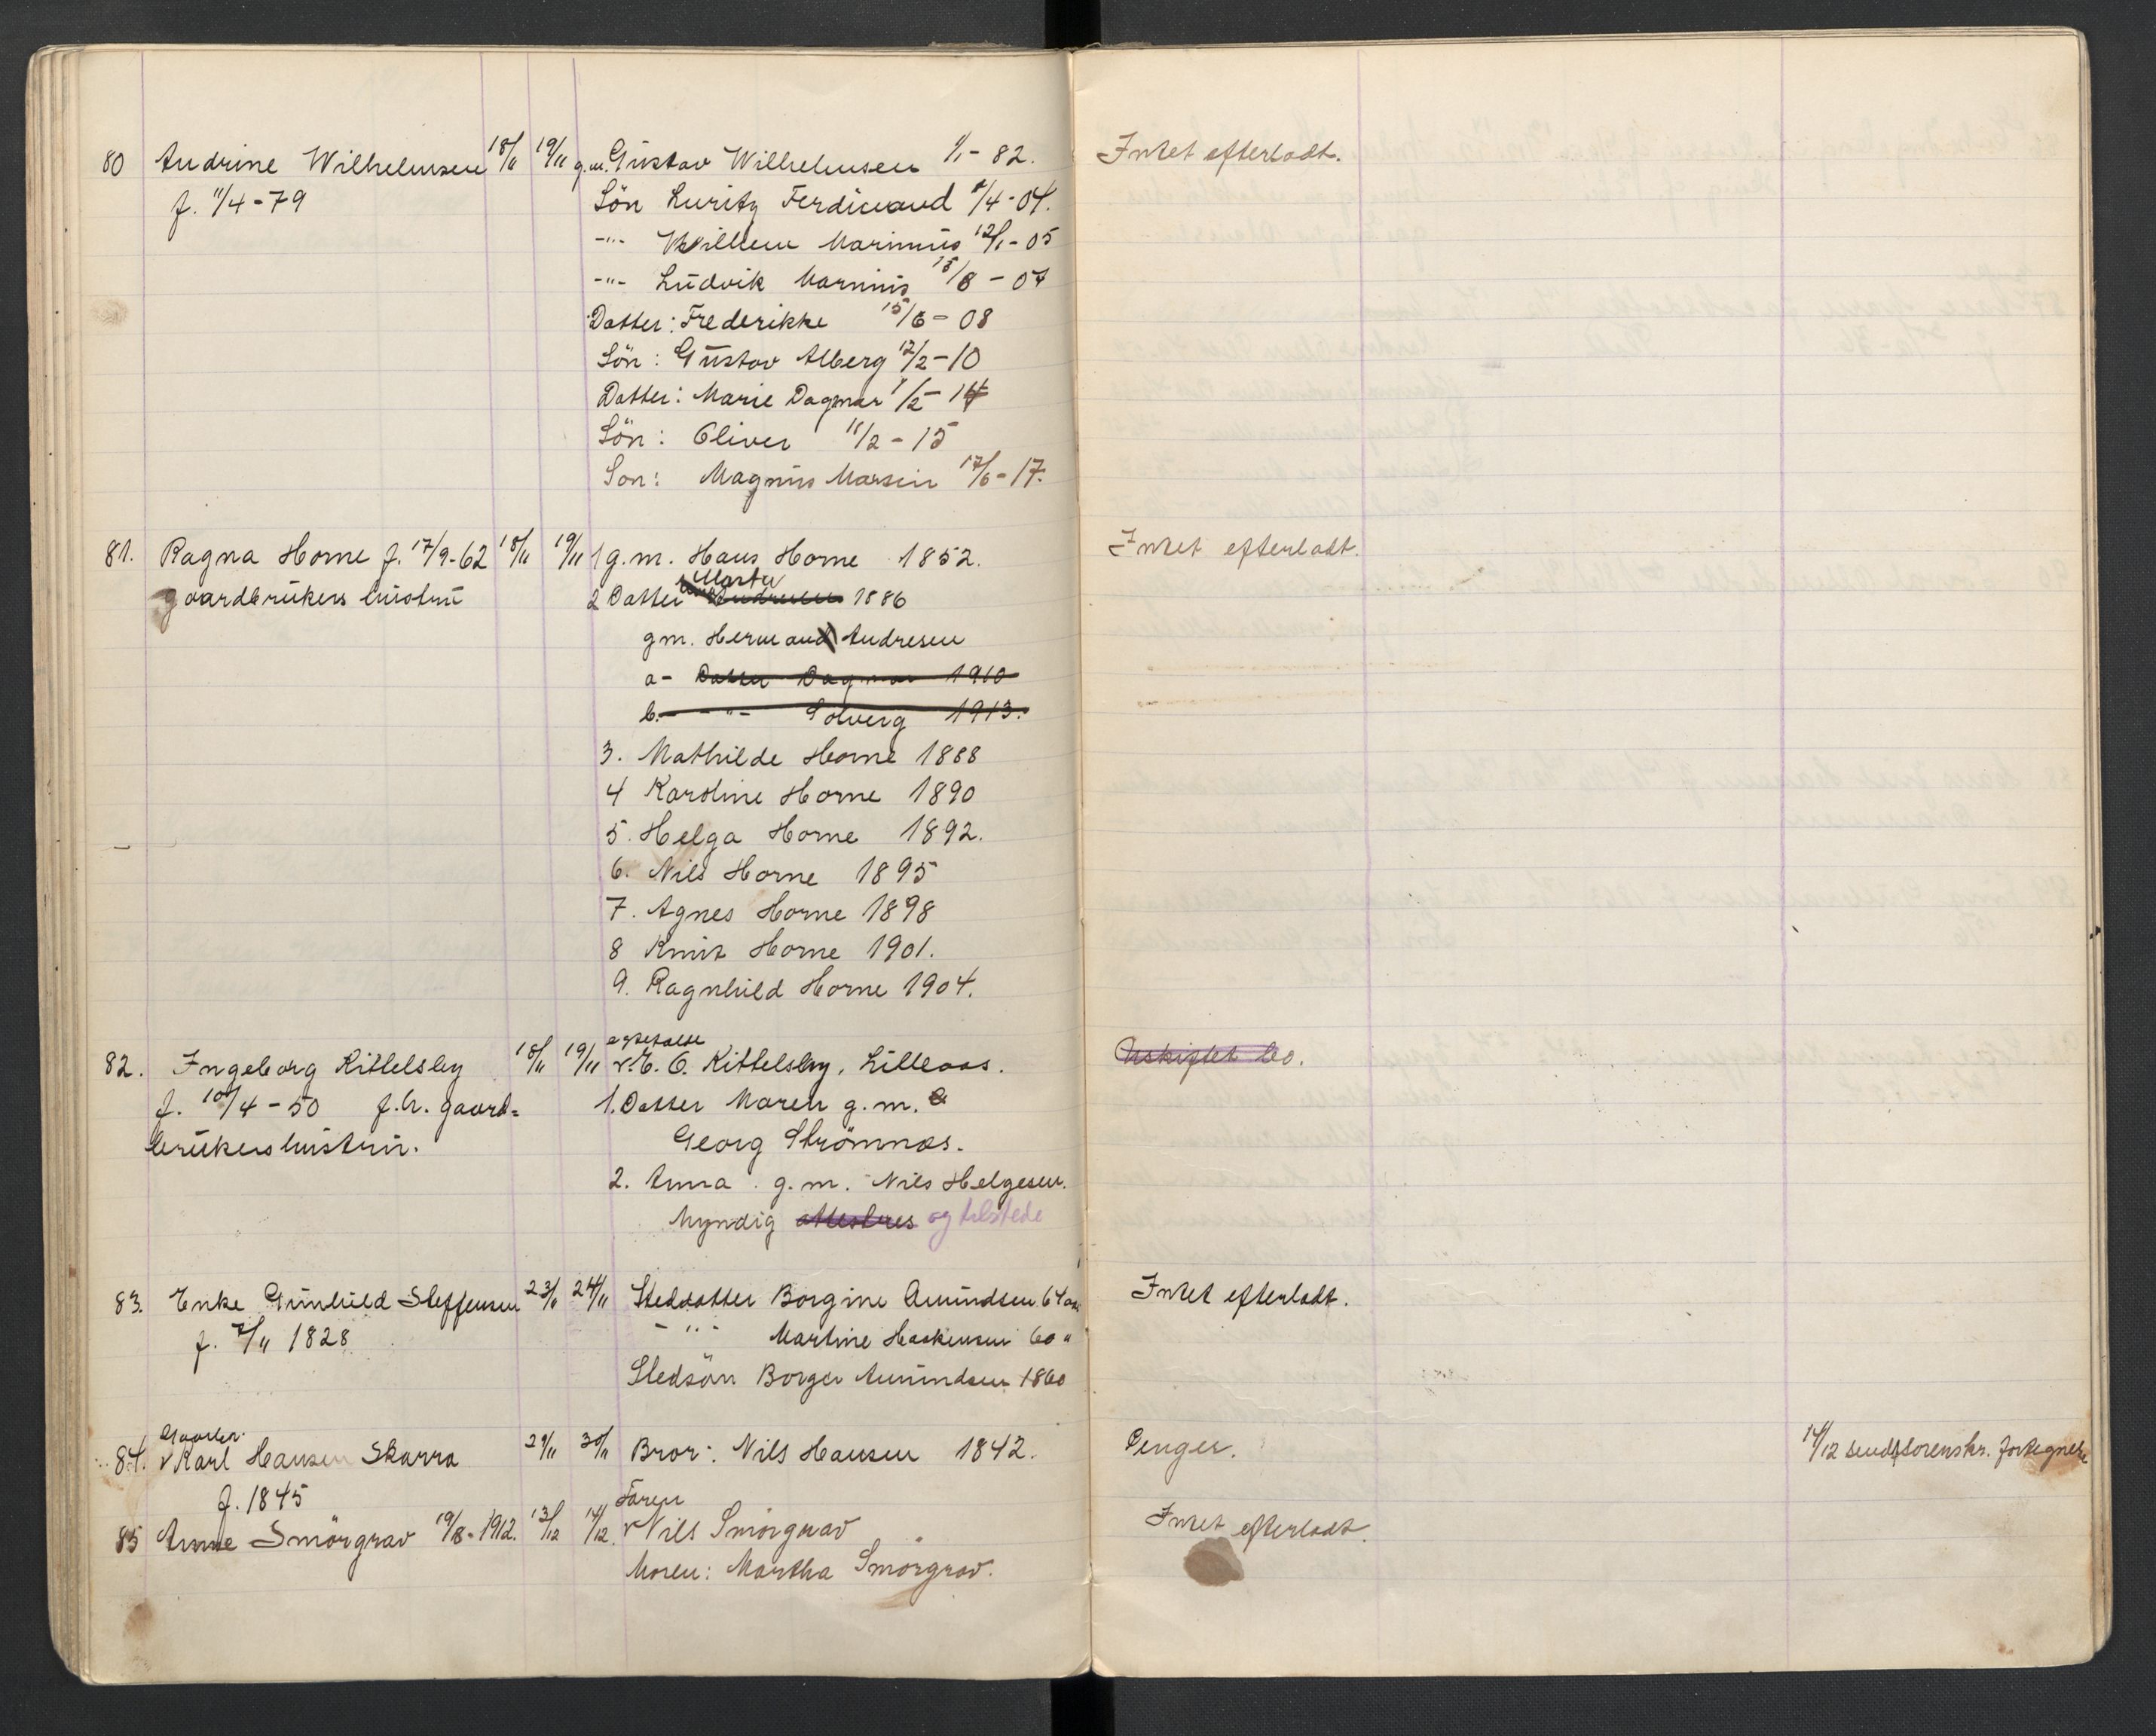 80 Andrine Wilhelmsen 18/11 19/11 g.m. Gustav Wilhelmsen 1/1-82. Intet efterladt.
f. 11/4-79 Sön Luritz Ferdinand 1/4-04.
-"- Willem Marinius 12/1-05
-"- Ludvik Marinius 15/8-07
Datter: Frederikke 15/6-08
Sön: Gustav Alberg 12/2-10
Datter: Marie Dagmar 1/2-14
Sön: Oliver 11/2-15
Son: Magnus Marsin 17/6-17.
81. Ragna Horne f. 17/9-62 18/11 19/11 1 g.m. Hans Horne 1852. Intet efterladt.
gaardbrukers hustru 2 Datter Marta 1886
gm. Herman Andresen
a- Datter Dagmar 1910
b. - -"- Solverg 1913.
3. Mathilde Horne 1888
4 Karoline Horne 1890
5. Helga Horne 1892.
6. Nils Horne 1895
7. Agnes Horne 1898
8 Knut Horne 1901.
9. Ragnhild Horne 1904.
egtefælle
82. Ingeborg Kittelsby 18/11 19/11 v. E. O. Kittelsby, Lilleaas. Uskiftet bo.
f. 10/4-50 f.h. gaard= 1. Datter Maren g.m.
brukers hustru. Georg Strömnæs.
2. Anna g.m. Nils Helgesen.
Myndig attesteres og tilstede
83. Enke Gunhild Steffensen 23/11 24/11 Steddatter Borgine Amundsen 64 aar Intet efterladt.
f. 7/11 1828 -"- Martine Haakensen 60 "
Stedsön Borger Amundsen 1860
Gaardbr.
84. v Karl Hansen Skarra 29/11 30/11 Bror: Nils Hansen 1842. Penger. 14/12 sendt sorenskr. fortegnelse
f. 1845
Faren
85 Anne Smörgrav 19/8-1912. 13/12 14/12. v Nils Smörgrav Intet efterladt.
Moren: Martha Smörgrav.